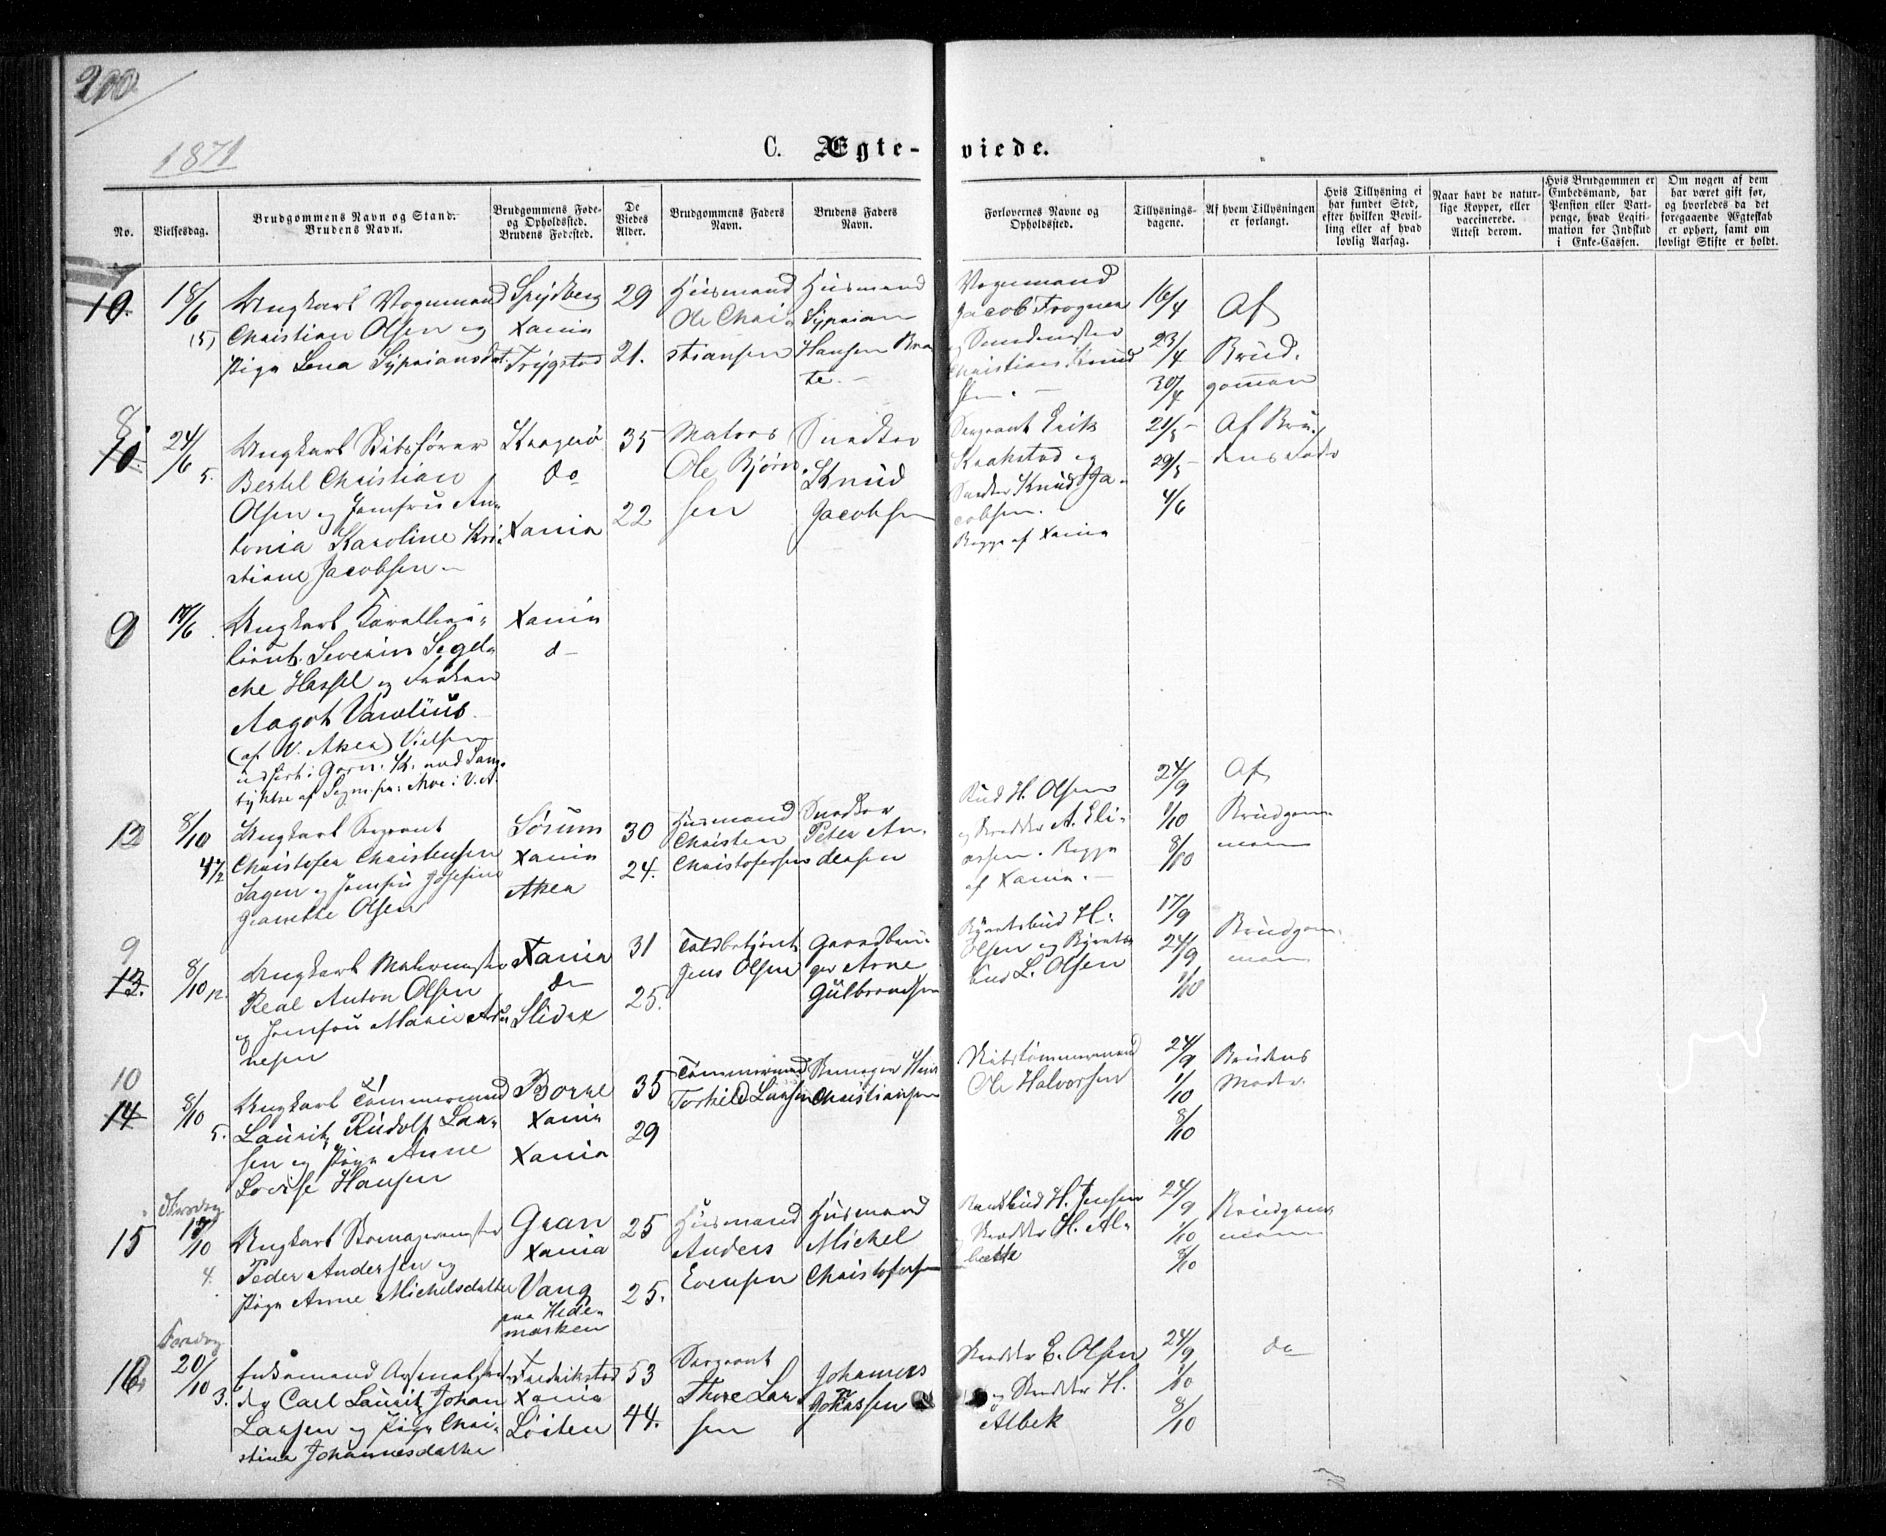 200
1871
C. Ægte-viede.
No.
Vielsesdag.
Brudgommens Navn og Stand.
Brudens Navn.
Brudgommens Føde-
og Opholdssted.
Brudens Fødested.
De
Viedes
Alder.
Brudgommens Faders
Navn.
Brudens Faders
Navn.
Forlovernes Navne og
Opholdssted.
Tillysnings-
dagene.
Af hvem Tillysningen
er forlangt.
Hvis Tillysning ei
har fundet Sted,
efter hvilken Bevil-
ling eller af hvad
lovlig Aarsag.
Naar havt de natur-
lige Kopper, eller
vaccinerede.
Attest derom.
Hvis Brudgommen er
Embedsmand, har
Pension eller Vart-
penge, hvad Legiti-
mation for Indskud
i Enke-Cassen.
Om nogen af dem
har været gift før,
og hvorledes da det
foregaaende Ægteskab
er ophørt, samt om
lovligt Skifte er holdt.
7
10.
18/6
(5)
Ungkarl Vognmand
Christian Olsen og
Pige Lena Sypriansdat.
Spydberg
Xania
Trygstad
29
21.
Husmand
Ole Chri-
stiansen
Husmand
Syprian
Hansen Bra
te. –
Vognmand
Jacob Frogner
og
Christian Knud
sen. –
16/4
23/4
30/4
Af
Brud-
gommen
8
10.
24/6
5.
Ungkarl Skibsfører
Bertel Christian
Olsen og Jomfru An-
tonia Karoline Kri-
stiane Jacobsen –
Kragerø
do
Xania
35
22
Matros
Ole Bjørn-
sen
Snedker
Knud
Jacobsen
Sergeant Erik
Kraakstad og
Snedker Knud Ja-
cobsen.
Begge af Xania
21/5 –
29/5 –
4/6
Af Bru-
dens Fader
9
17/6
Ungkarl Kavalleri-
løitn. Severin Segel-
cke Hassel og Frøken
Aagot Vandius
(af V. Aker) Vielsen
udført i Garn. K. med Sam-
tykke af Sogn.pr. Moe i V. A
Xania
d –
12
8/10
4 1/2
Ungkarl Sergeant
Christofer Christensen
Sagen og Jomfru Josefine
Jeanette Olsen
Sørum
Xania
Aker
30
24.
Husmand
Christen
Christofersen
Snedker
Peter An-
dersen
Bud H. Olsen
og Skrædder A. Eli-
assen. Begge
af Xania. –
24/9
1/10
8/10
Af
Brudgom-
men
9
13.
8/10
Ungkarl Malermster
Real Anton Olsen
og Jomfru Marie Ar-
nesen
Xania
do
Slidre
31
25.
Toldbetjent
Jens Olsen
Gaardbru-
ger Arne
Gulbrandsen
H.
Olsen og
bud L. Olsen
17/9
24/9
1/10
Brudgom-
men
10
14
8/10
5.
Ungkarl Tømmermand
Lauritz Rudolf Lar-
sen og Pige Anne
Lovise Hansen
Borre
Xania
Xania
35
29
Tømmermand
Torkild Larsen
Christiansen
Skibstømmermand
Ole Halvorsen
24/9
1/10
8/10
Brudens
Moder
15
/10
4.
Ungkarl Skomagermster
Peder Andersen og
Pige Anne Michelsdatter
Gran
Xania
Vang
paa Hede-
marken
25
25.
Husmand
Anders
Evensen
Husmand
Michel
Christofersen
H. Jensen
Skrædder H. Al-
24/9
1/10
8/10
Brudgom-
men
16
20/10
3.
Enkemand
Carl Lauritz Johan
Larsen og Pige Chri-
stine Johannesdatter
Fredrikstad
Xania
Løiten
53
44.
Sergeant
Thore Lar-
sen
Johannes
Skrædder E. Olsen
og Skrædder H.
Albek
24/9
1/10
8/10
do